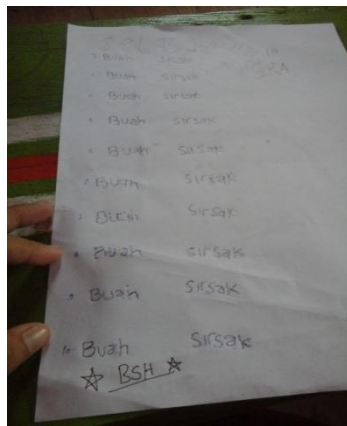 Buah Sirsak
Buah Sirsak
Buah Sirsak
Buah Sirsak
Buah Sirsak
Buah Sirsak
Buah Sirsak
Buah Sirsak
Buah Sirsak
10. Buah Sirsak
☆ BSH ☆